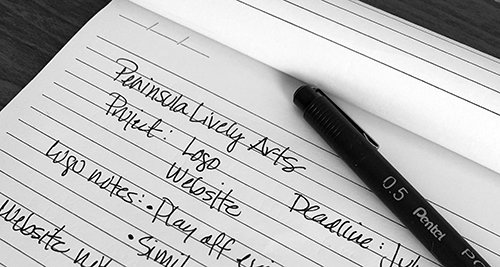 Peninsula Lively Arts
Project: Logo
Website
Deadline:
Logo notes: • Play off
•
Website
0.5 Pentel